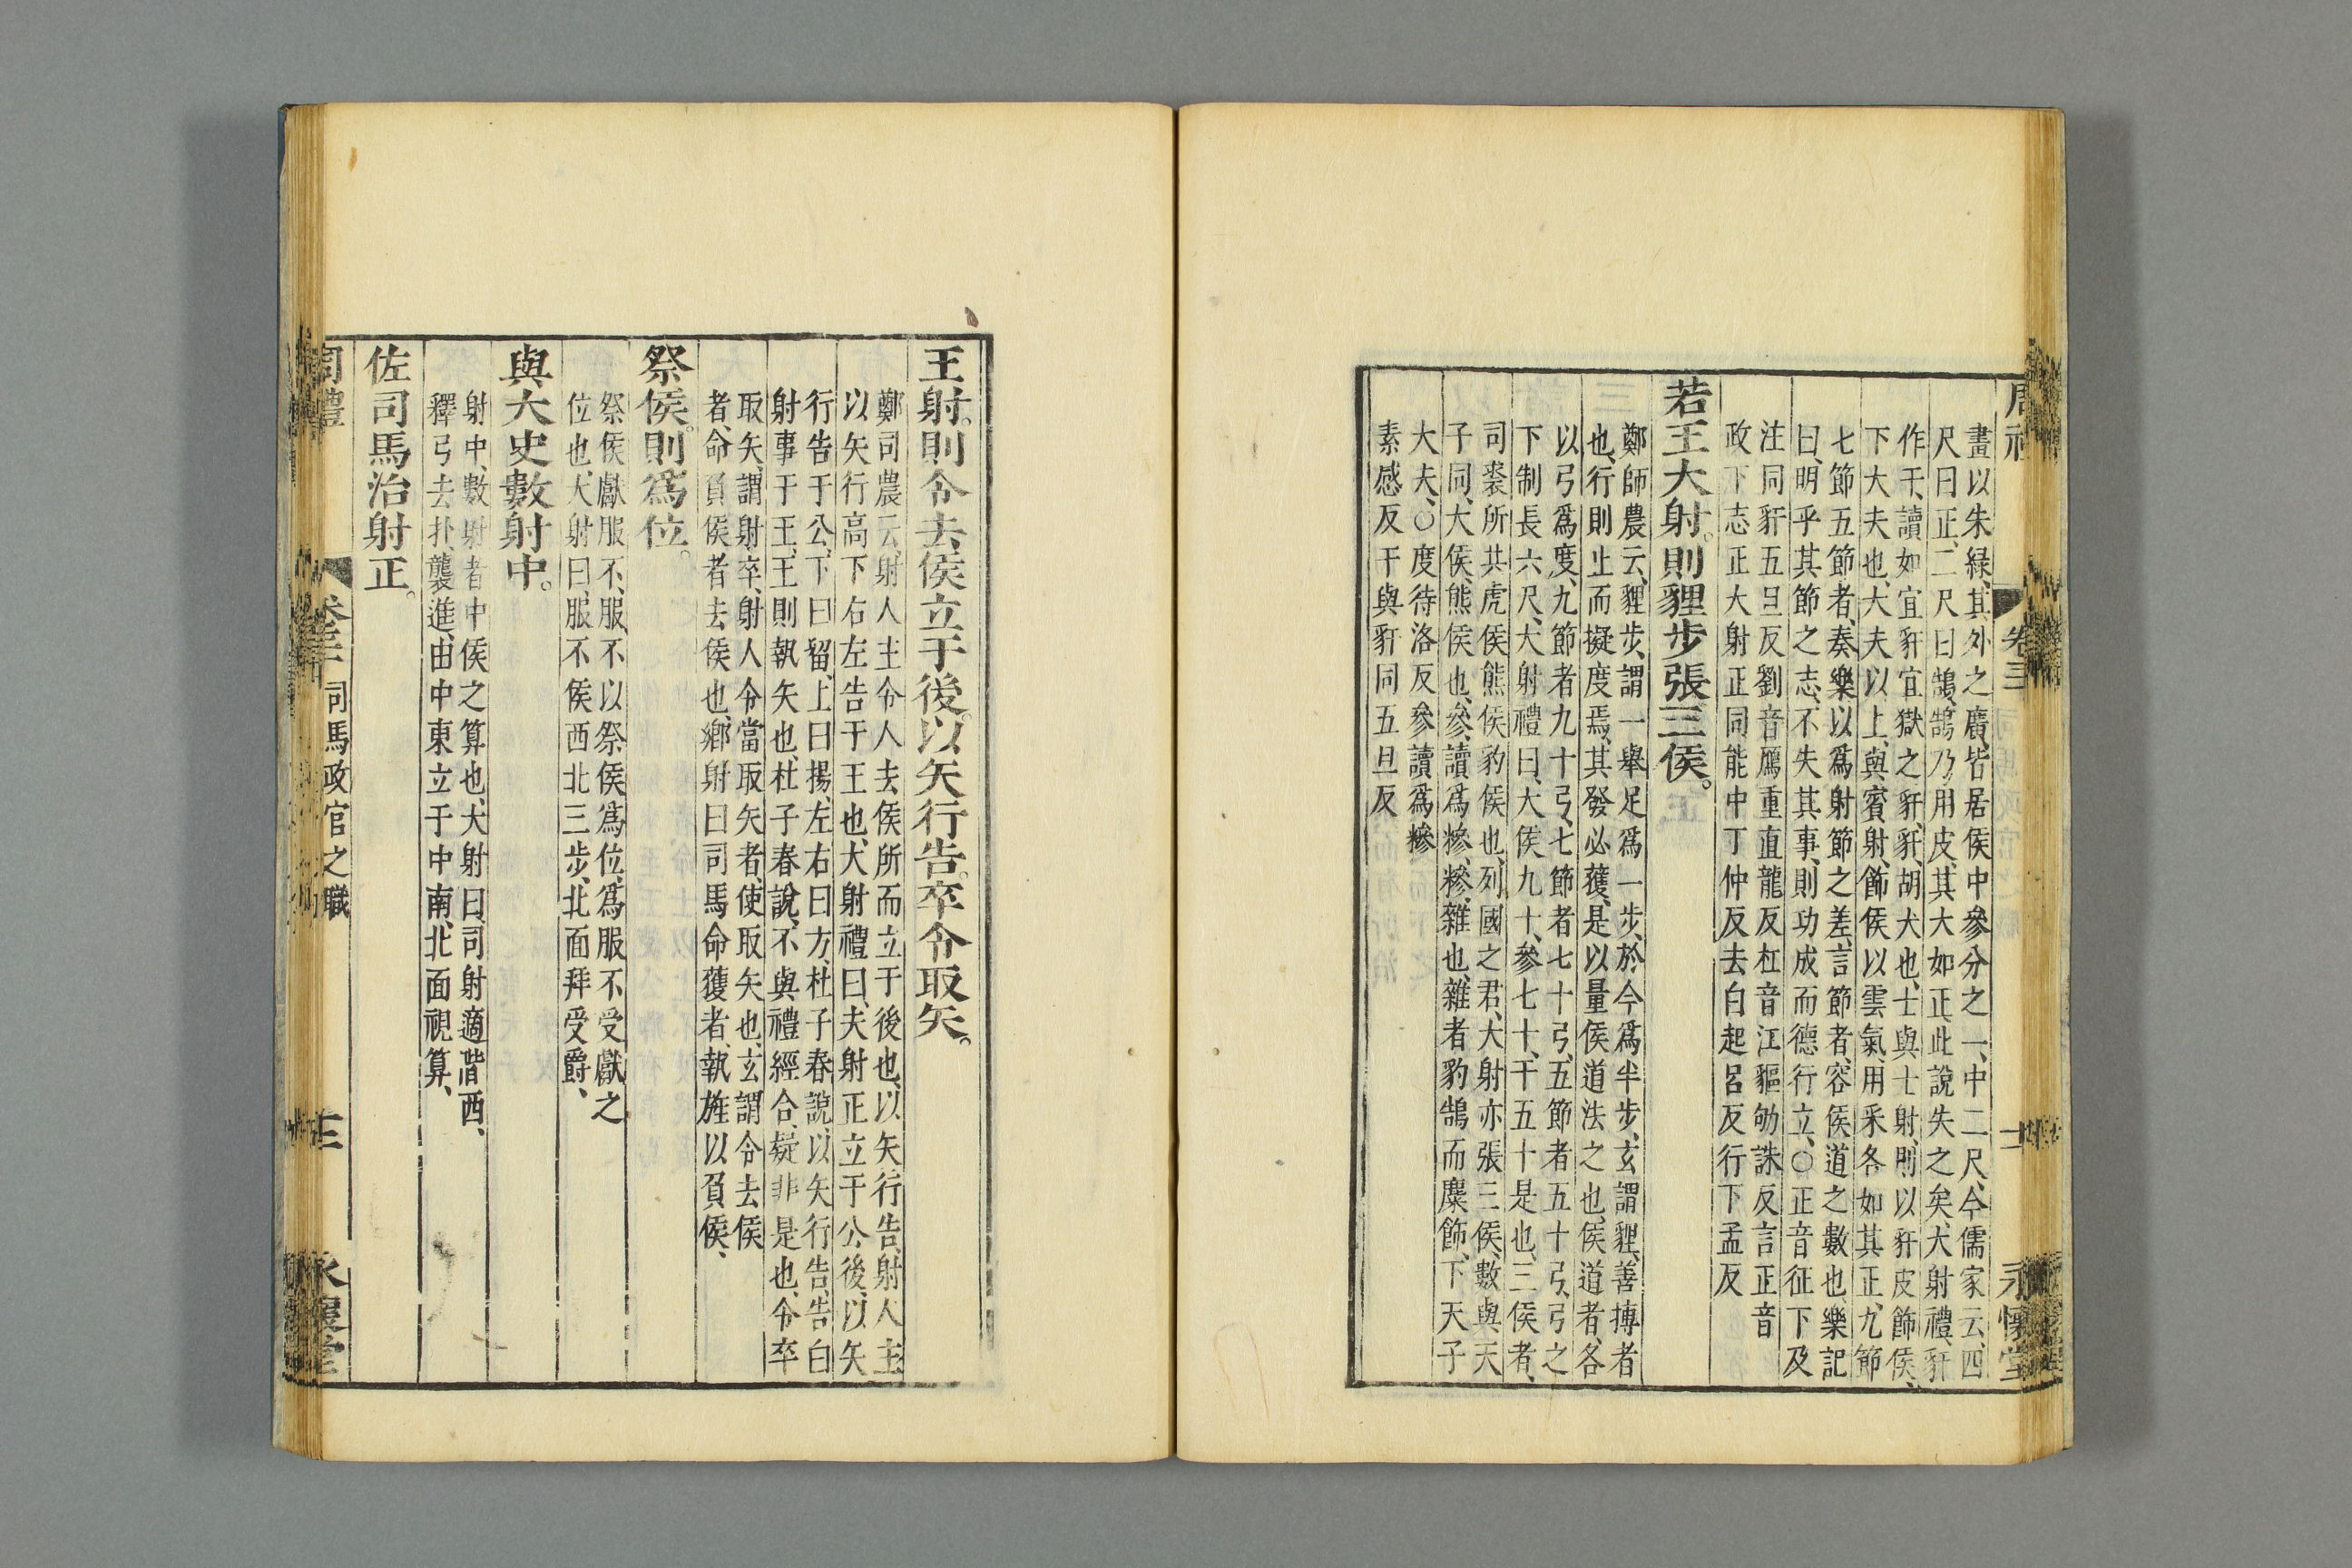 畫以朱緑、其外之廣、皆居侯中參分之一、中二尺、今儒家云、四
尺曰正、二尺曰鵠、鵠乃用皮、其大如正、此說失之矣、大射禮、豻
作干、讀如宜豻宜獄之豻、豻、胡犬也、士與士射、則以豻皮飾侯、
下大夫也、大夫以上、與賓射、飾侯以雲氣、用采各如其正、九節
七節五節者、奏樂以爲射節之差、言節者、容侯道之數也、樂記
曰、明乎其節之志、不失其事、則功成而德行立、○正音征下及
注同豻五旦反劉音鴈重直龍反杠音江貙勑誅反言正音
政下志正大射正同能中丁仲反去白起呂反行下孟反
若王大射。則貍步張三侯。
鄭師農云、貍步、謂一舉足爲一步、於今爲半步、玄謂貍、善搏者
也、行則止而擬度焉、其發必獲、是以量侯道法之也、侯道者、各
以弓爲度、九節者九十弓、七節者七十弓、五節者五十弓、弓之
下制長六尺、大射禮曰、大侯九十、參七十、干五十是也、三侯者、
司裘所共虎侯熊侯豹侯也、列國之君、大射亦張三侯、數與天
子同、大侯、熊侯也、參、讀爲糝、糝、雜也、雜者豹鵠而麋飾、下天子
大夫、○度待洛反參讀爲糝
素感反干與豻同五旦反
卷三
永懷堂
王射。則令去侯立于後。以矢行告。卒令取矢。
鄭司農云、射人主令人去侯所而立于後也、以矢行告、射人主
以矢行高下右左告于王也、大射禮曰、大射正立于公後、以矢
行告于公、下曰留、上曰揚、左右曰方、杜子春說、以矢行告、告白
射事于王、王則執矢也、杜子春說、不與禮經合、疑非是也、令卒
取矢、謂射卒、射人令當取矢者、使取矢也、玄謂令去侯
者、命負侯者去侯也、鄉射曰司馬、命獲者、執旌以負侯、
祭侯。則爲位。
祭侯獻服不、服不以祭侯爲位、爲服不受獻之
位也、大射曰、服不侯西北三步、北面拜受爵、
與大史數射中。
射中、數射者中侯之算也、大射曰、司射適階西、
釋弓去扑、襲進、由中東立于中南、北面視算、
佐司馬治射正。
司馬政官之職